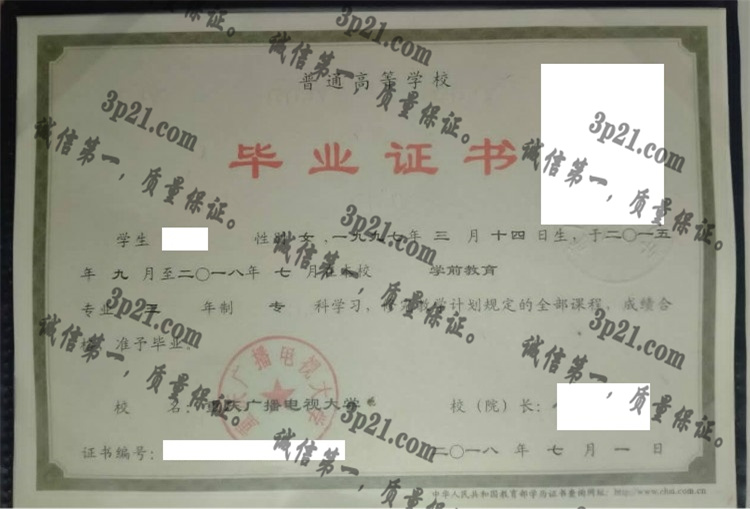 普通高等学校
毕业证书
学生 性别 女，一九九七年 三 月 十四 日生，于二〇一五
年 九 月至二〇一八年 七 月在本校 学前教育
专业 三 年制 专 科学习，修完教学计划规定的全部课程，成绩合
准予毕业。
校 名：重庆广播电视大学 校（院）长：
证书编号： 二〇一八 年 七 月 一 日
中华人民共和国教育部学历证书查询网址：http://www.chsi.com.cn
重庆广播电视大学
3p21.com
诚信第一，质量保证。
3p21.com
诚信第一，质量保证。
3p21.com
诚信第一，质量保证。
3p21.com
诚信第一，质量保证。
3p21.com
诚信第一，质量保证。
3p21.com
诚信第一，质量保证。
3p21.com
诚信第一，质量保证。